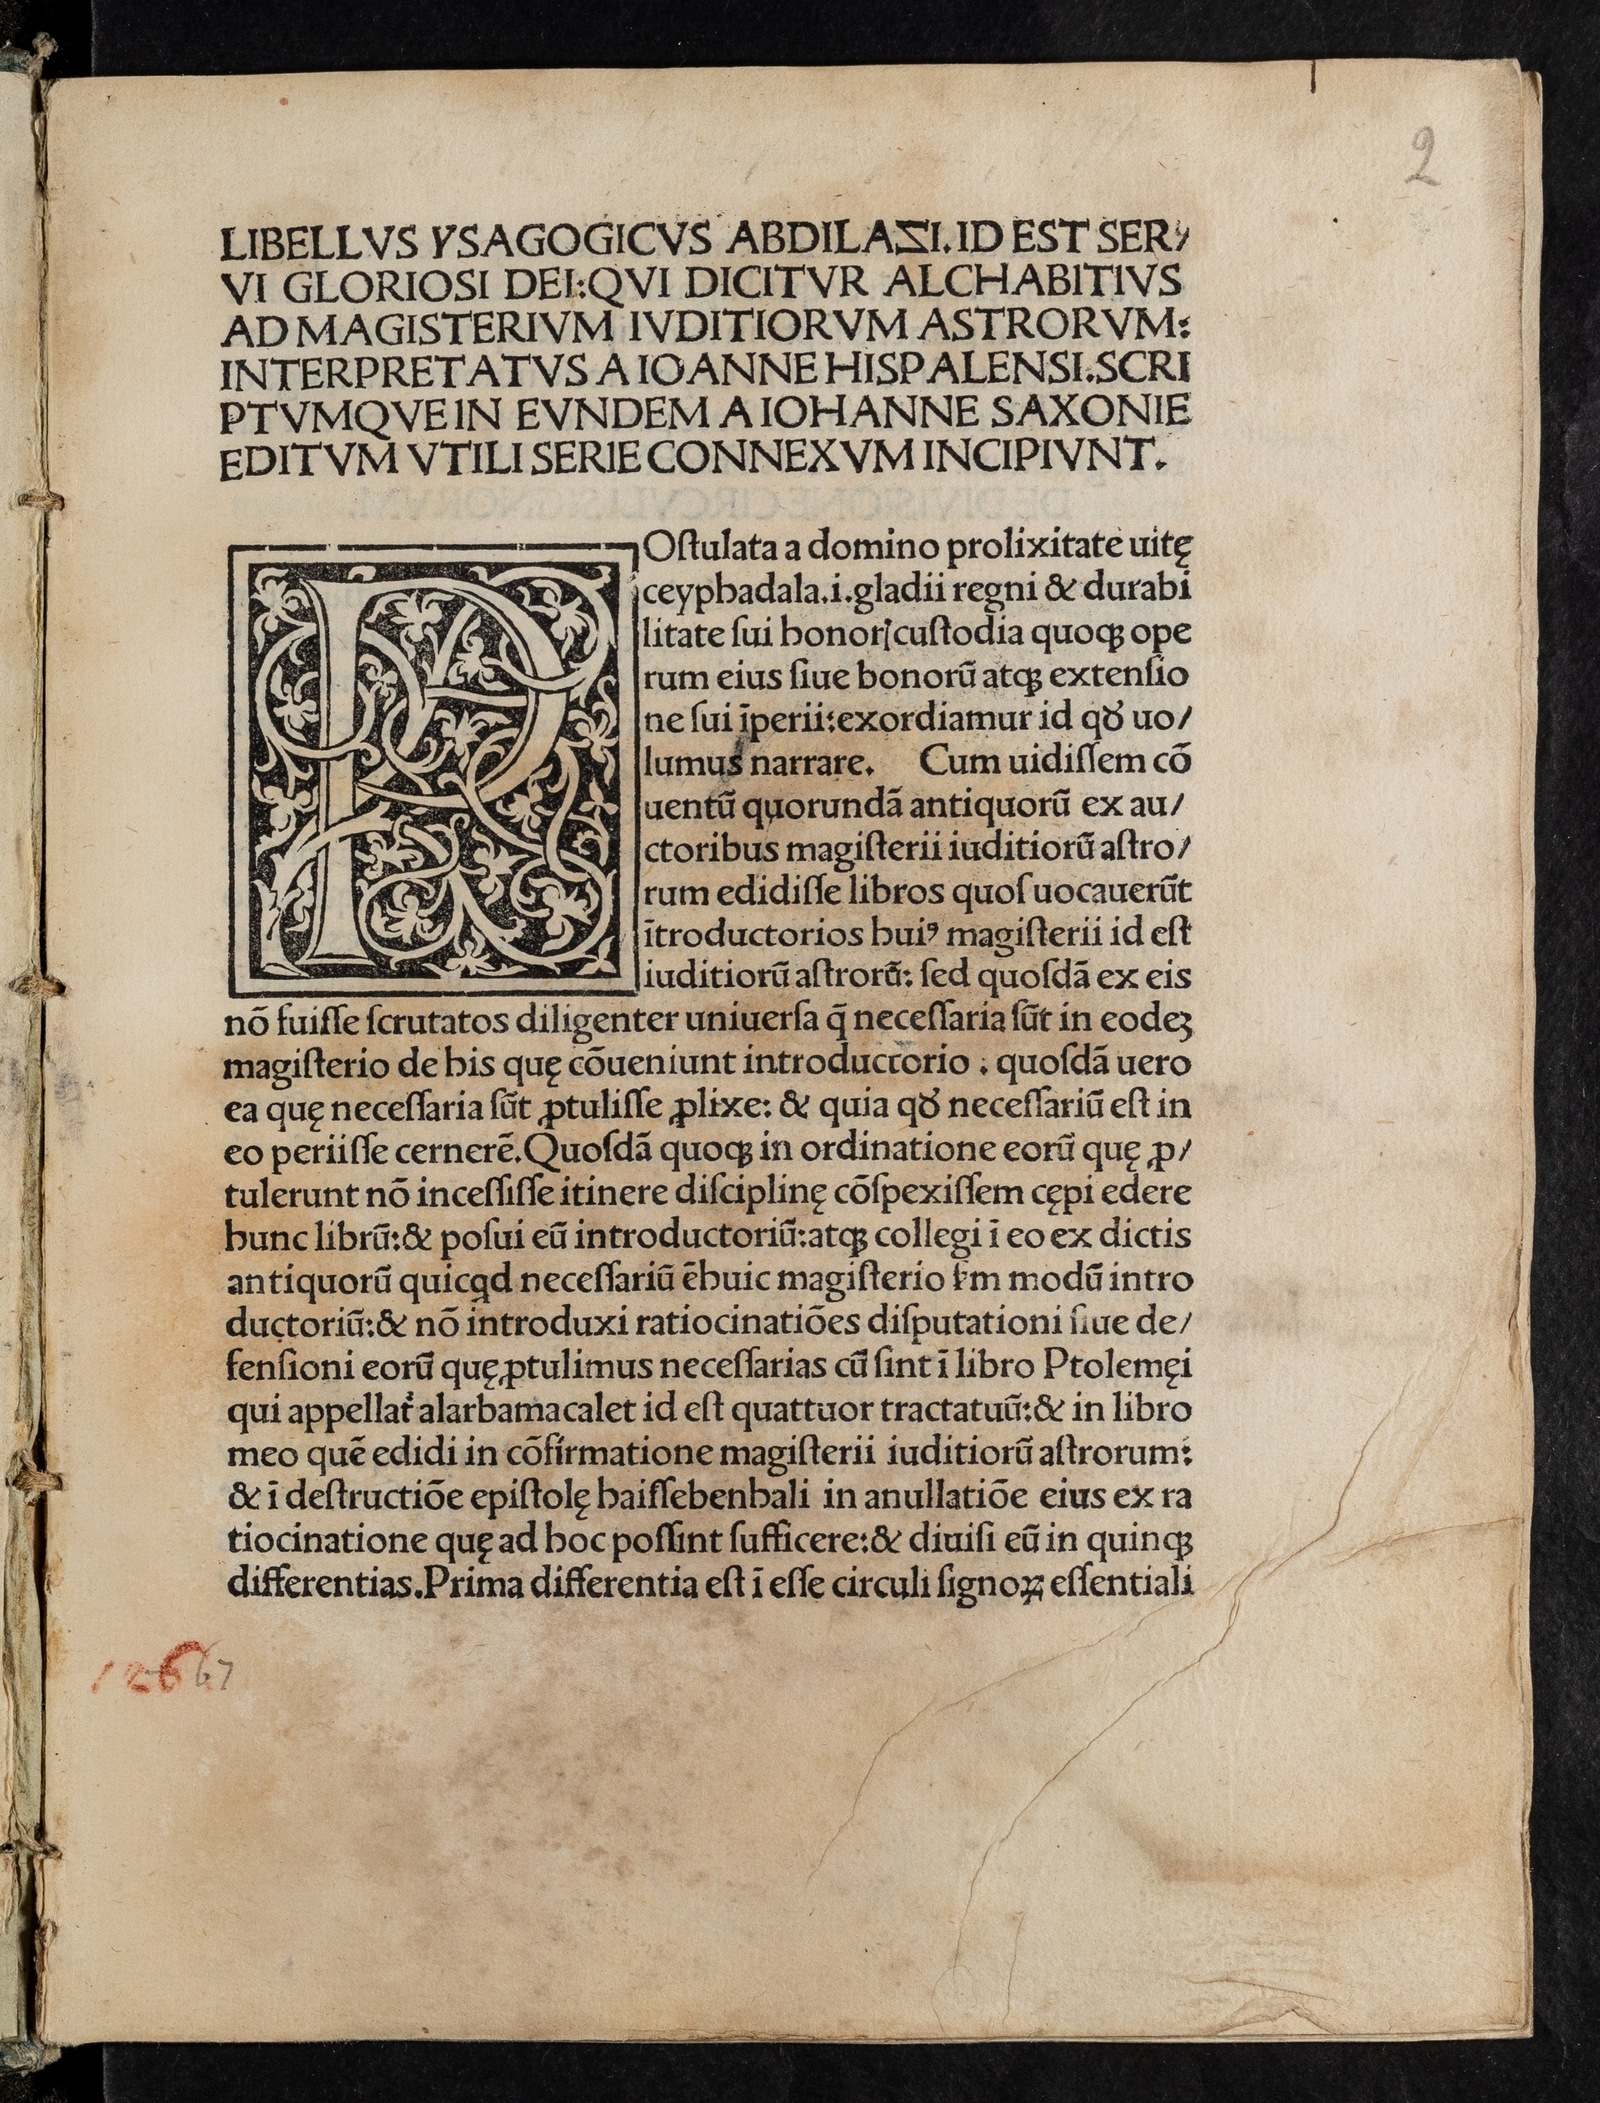 2
LIBELLVS YSAGOGICVS ABDILAZI. ID EST SER/
VI GLORIOSI DEI: QVI DICITVR ALCHABITIVS
AD MAGISTERIVM IVDITIORVM ASTRORVM:
INTERPRETATVS A IOANNE HISPALENSI. SCRI
PTVMQVE IN EVNDEM A IOHANNE SAXONIE
EDITVM VTILI SERIE CONNEXVM INCIPIVNT.
POſtulata a domino prolixitate uitę
ceyphadala.i.gladii regni & durabi
litate ſui honorꝭ cuſtodia quoqꝫ ope
rum eius ſiue bonorū atqꝫ extenſio
ne ſui īperii: exordiamur id qđ uo/
lumus narrare. Cum uidiſſem cō
uentū quorundā antiquorū ex au/
ctoribus magiſterii iuditiorū aſtro/
rum edidiſſe libros quoſ uocauerūt
ītroductorios huiꝰ magiſterii id eſt
iuditiorū aſtrorū: ſed quoſdā ex eis
nō fuiſſe ſcrutatos diligenter uniuerſa q̄ neceſſaria ſūt in eodeꝫ
magiſterio de his quę cōueniunt introductorio: quoſdā uero
ea quę neceſſaria ſūt ꝓtuliſſe ꝓlixe: & quia qđ neceſſariū eſt in
eo periiſſe cernerē. Quoſdā quoqꝫ in ordinatione eorū quę ꝓ/
tulerunt nō inceſſiſſe itinere diſciplinę cōſpexiſſem cępi edere
hunc librū: & poſui eū introductoriū: atqꝫ collegi ī eo ex dictis
antiquorū quicqd neceſſariū ē huic magiſterio ẜm modū intro
ductoriū: & nō introduxi ratiocinatiōes diſputationi ſiue de/
fenſioni eorū quę ꝓtulimus neceſſarias cū ſint ī libro Ptolemęi
qui appellat᷑ alarbamacalet id eſt quattuor tractatuū: & in libro
meo quē edidi in cōfirmatione magiſterii iuditiorū aſtrorum:
& ī deſtructiōe epiſtolę haiſſebenhali in anullatiōe eius ex ra
tiocinatione quę ad hoc poſſint ſufficere: & diuiſi eū in quinqꝫ
differentias. Prima differentia eſt ī eſſe circuli ſignoꝝ eſſentiali
12667